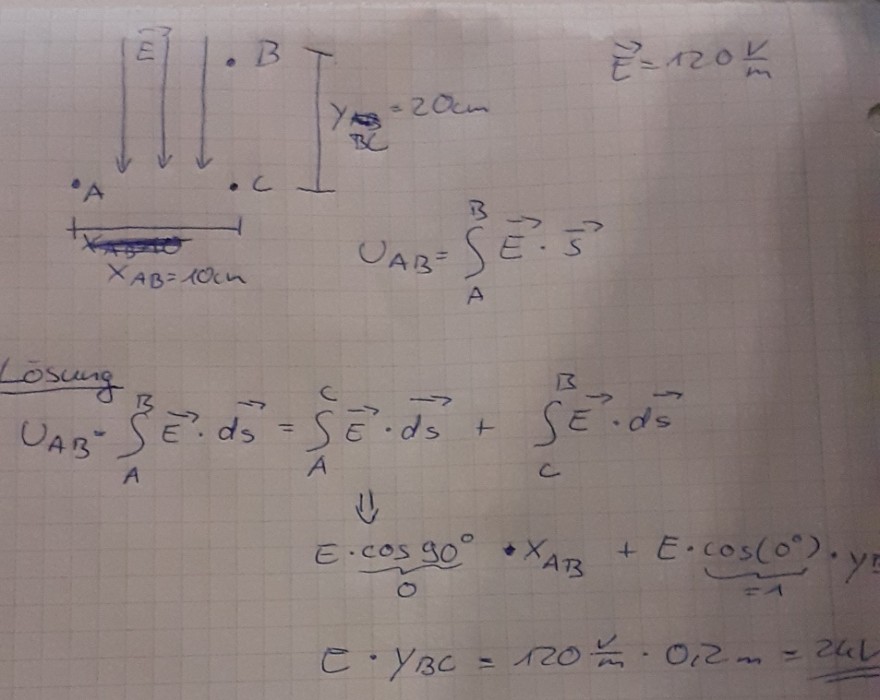 E⃗ · B E⃗ = 120 V/m
y BC = 20cm
· A · C
x AB = 10cm
U AB = ∫ A B E⃗ · s⃗
Lösung
U AB = ∫ A B E⃗ · ds⃗ = ∫ A C E⃗ · ds⃗ + ∫ C B E⃗ · ds⃗
⇓
E · cos 90° · x AB + E · cos(0°) · y
0 = 1
E · y BC = 120 V/m · 0,2 m =